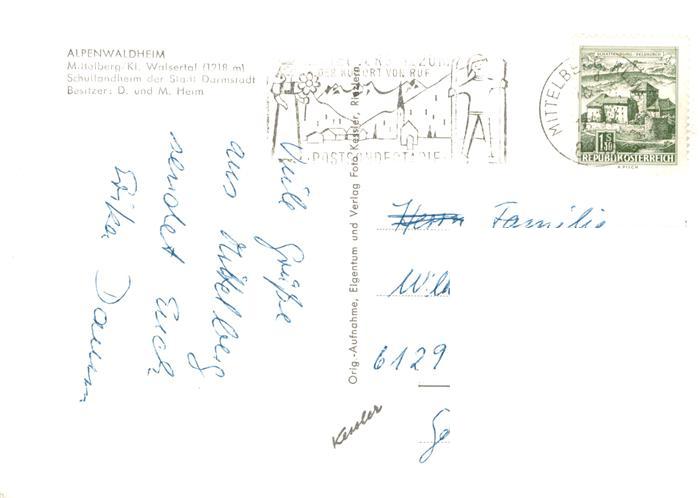 ALPENWALDHEIM
Mittelberg/Kl. Walsertal (1218 m)
Schullandheim der Stadt Darmstadt
Besitzer: D. und M. Heim
Viele Grüße
aus Mittelberg
sendet Euch
Erika
DER KURORT VON RUF
MITTELB
SCHATTENBURG FELDKIRCH
1S50
REPUBLIK ÖSTERREICH
Orig.-Aufnahme, Eigentum und Verlag Foto Kessler, Riezlern,
Herrn Familie
6129
Kessler